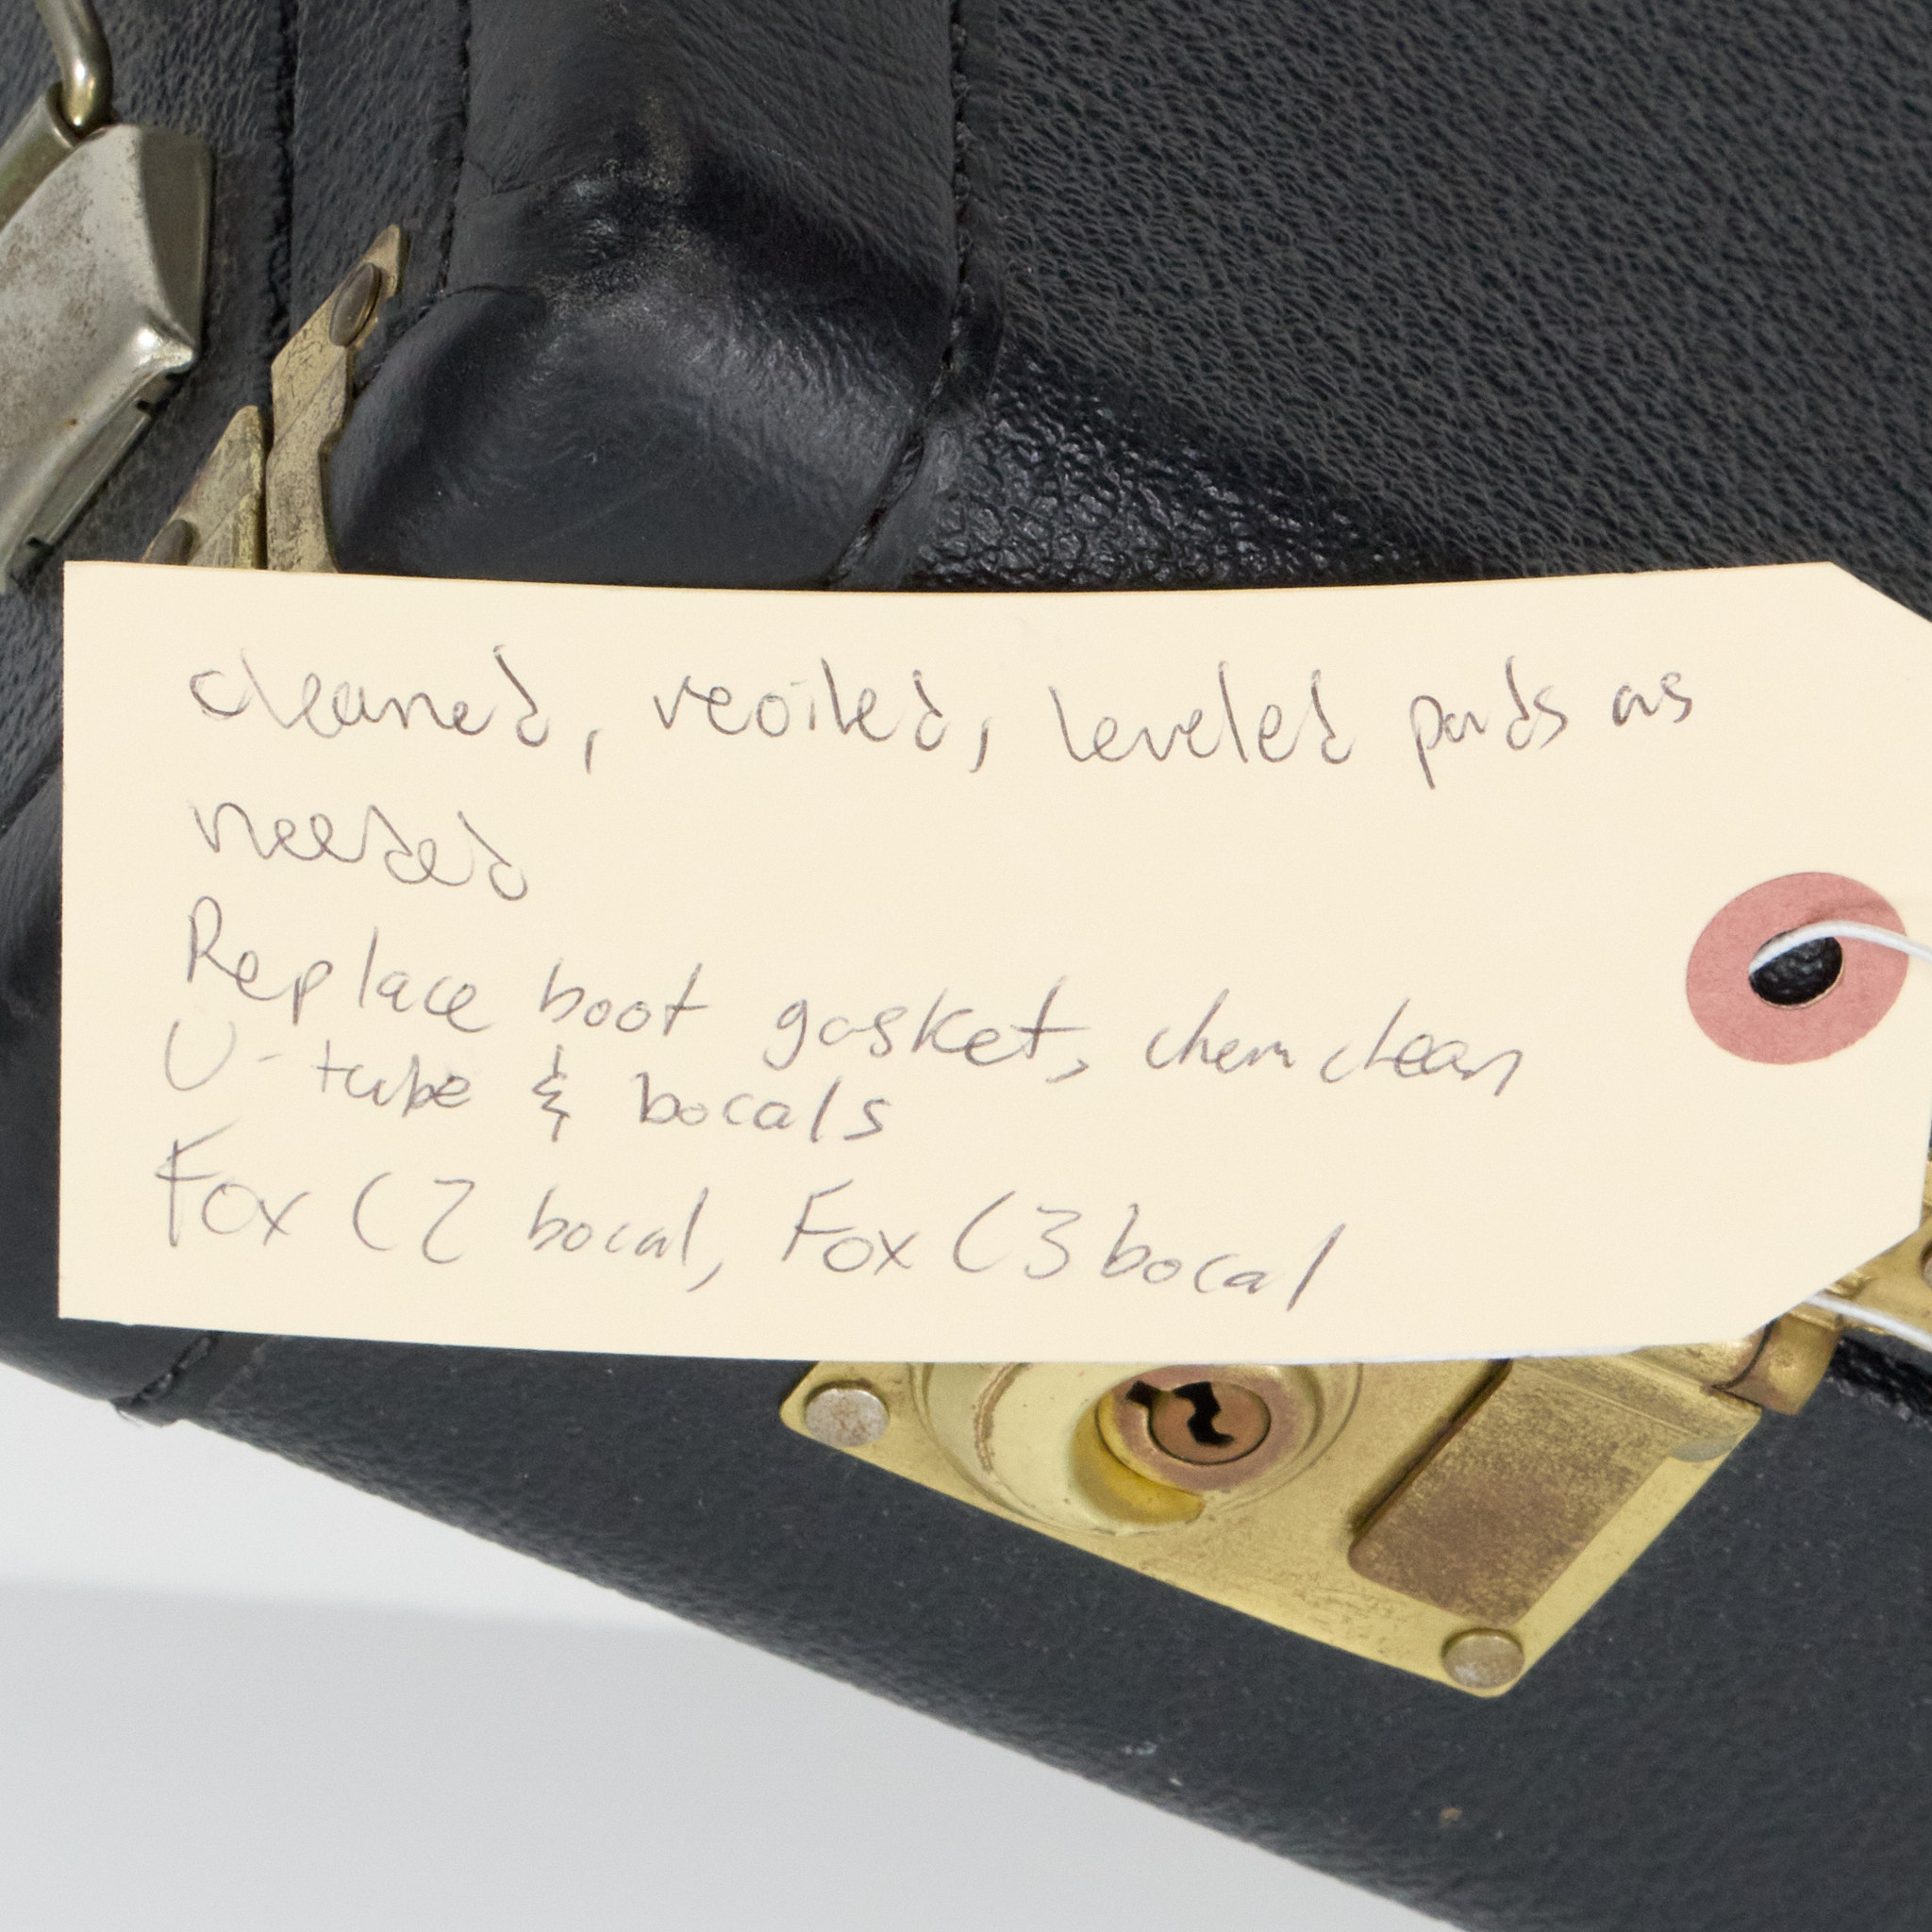 cleaned, reoiled, leveled pads as
needed
Replace boot gasket, chem clean
U-tube & bocals
Fox C2 bocal, Fox C3 bocal